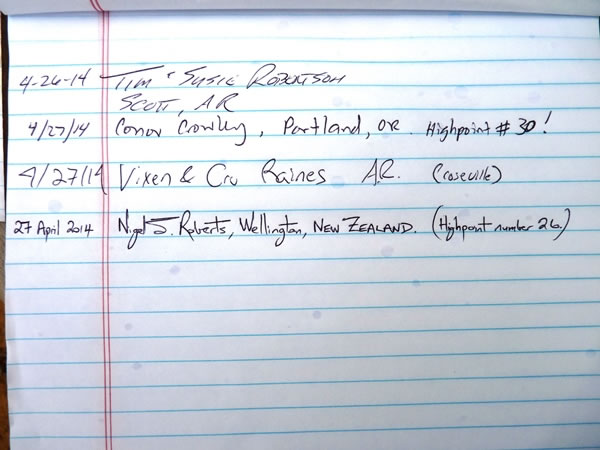 4-26-14 Tim & Susie Robertson
Scott, AR
4/27/14 Conor Crowley, Portland, OR. Highpoint # 30!
4/27/14 Vixen & Cru Raines AR. (roseville)
27 April 2014 Nigel S. Roberts, Wellington, NEW ZEALAND. (Highpoint number 26)